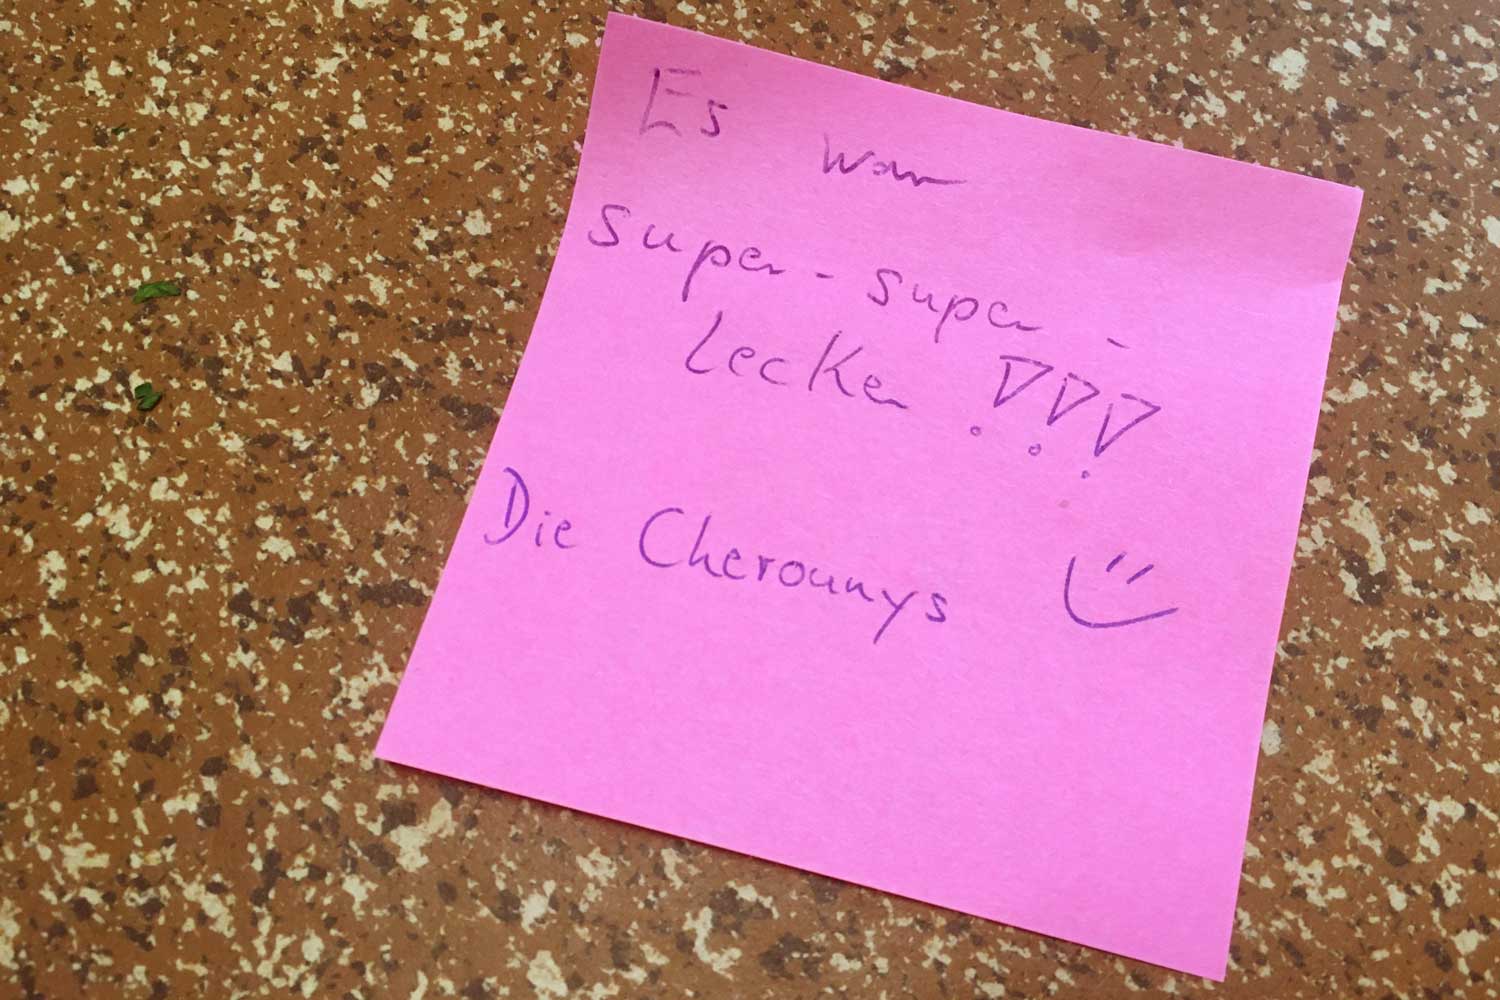 Es war
super-super-
Lecker!!!
Die Cherounnys